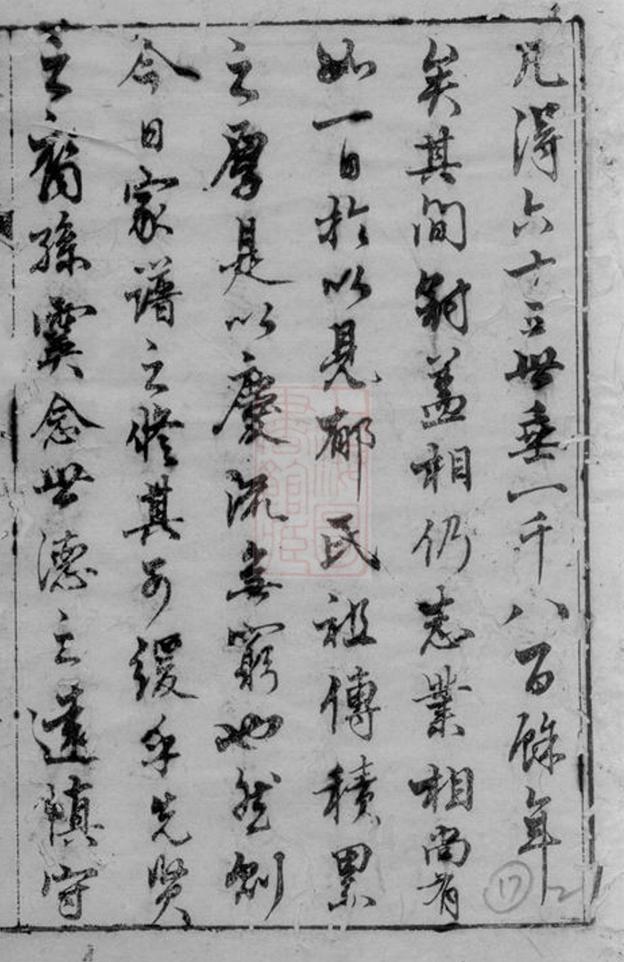 凡得六十三世垂一千八百餘年
矣其間封蓋相仍志業相尚有
如一日於以見郁氏祖傳積累
之厚是以慶流無窮也然則
今日家譜之修其可緩乎先賢
之裔孫霙念世德之遠慎守
17